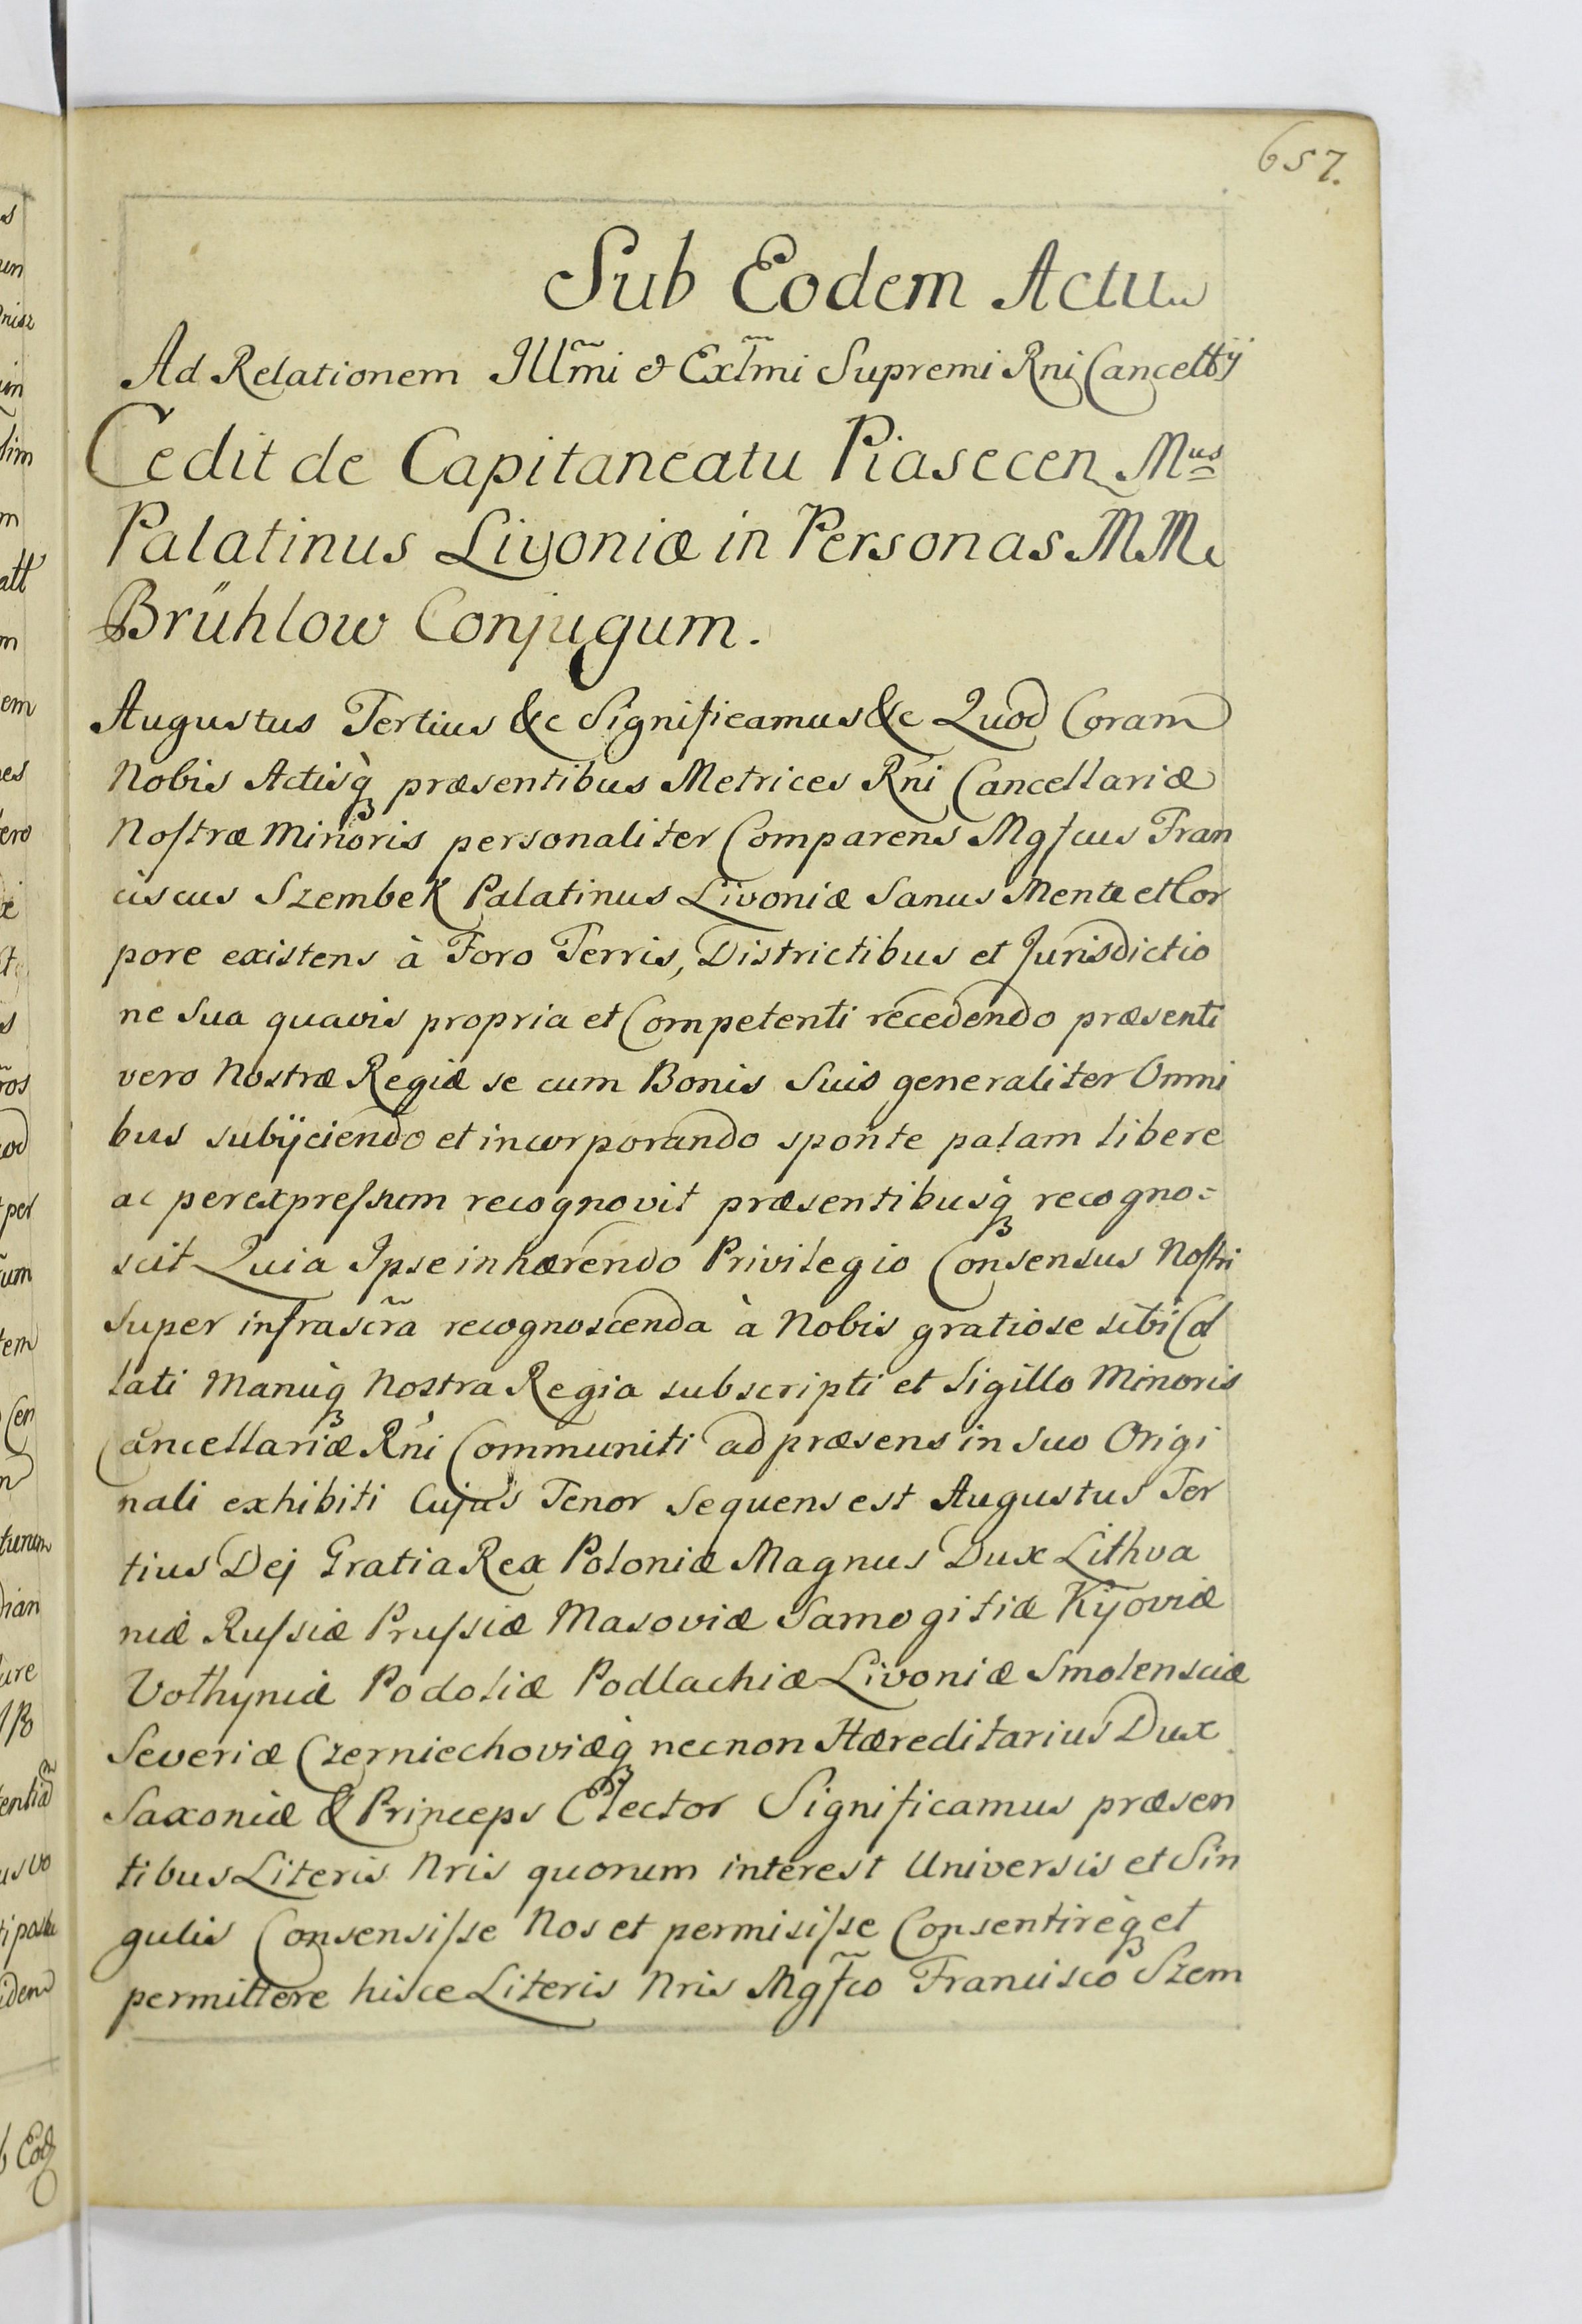 657.
Sub Eodem Actu
Ad Relationem Illm̃i & Exl̃mi Supremi Rni Cancellÿ
Cedit de Capitaneatu Piasecen Mus
Palatinus Livoniæ in Personas MM
Brühlow Conjugum.
Augustus Tertius &c Significamus &c Quod Coram
Nobis Actisq́ præsentibus Metrices Rni Cancellariæ
Noſtræ Minoris personaliter Comparens Mgſcus Fran
ciscus Szembek Palatinus Livoniæ Sanus Mente et Cor
pore existens à Foro Terris, Districtibus et Jurisdictio
ne Sua quavis propria et Competenti recedendo præsenti
vero Nostræ Regiæ se cum Bonis Suis generaliter Omni
bus subijciendo et incorporando sponte palam libere
ac per expreſsum recognovit præsentibusq́ recogno=
scit Quia Ipse inhærendo Privilegio Consensus Noſtri
super infrascr̃a recognoscenda à Nobis gratiose sibi Col
lati Manuq́ Nostra Regia subscripti et Sigillo Minoris
Cancellariæ Rni Communiti ad præsens in suo Origi
nali exhibiti Cujus Tenor Sequens est Augustus Ter
tius Dej Gratia Rex Poloniæ Magnus Dux Lithva
niæ Ruſsiæ Pruſsiæ Masoviæ Samogitiæ Kijoviæ
Volhyniæ Podoliæ Podlachiæ Livoniæ Smolensciæ
Severiæ Czerniechoviæq́ necnon Hæreditarius Dux
Saxoniæ & Princeps Elector Significamus præsen
tibus Literis Nris quorum interest Universis et Sin
gulis Consensiſse Nos et permisiſse Consentireq́ et
permittere hisce Literis Nris Mgf̃co Francisco Szem